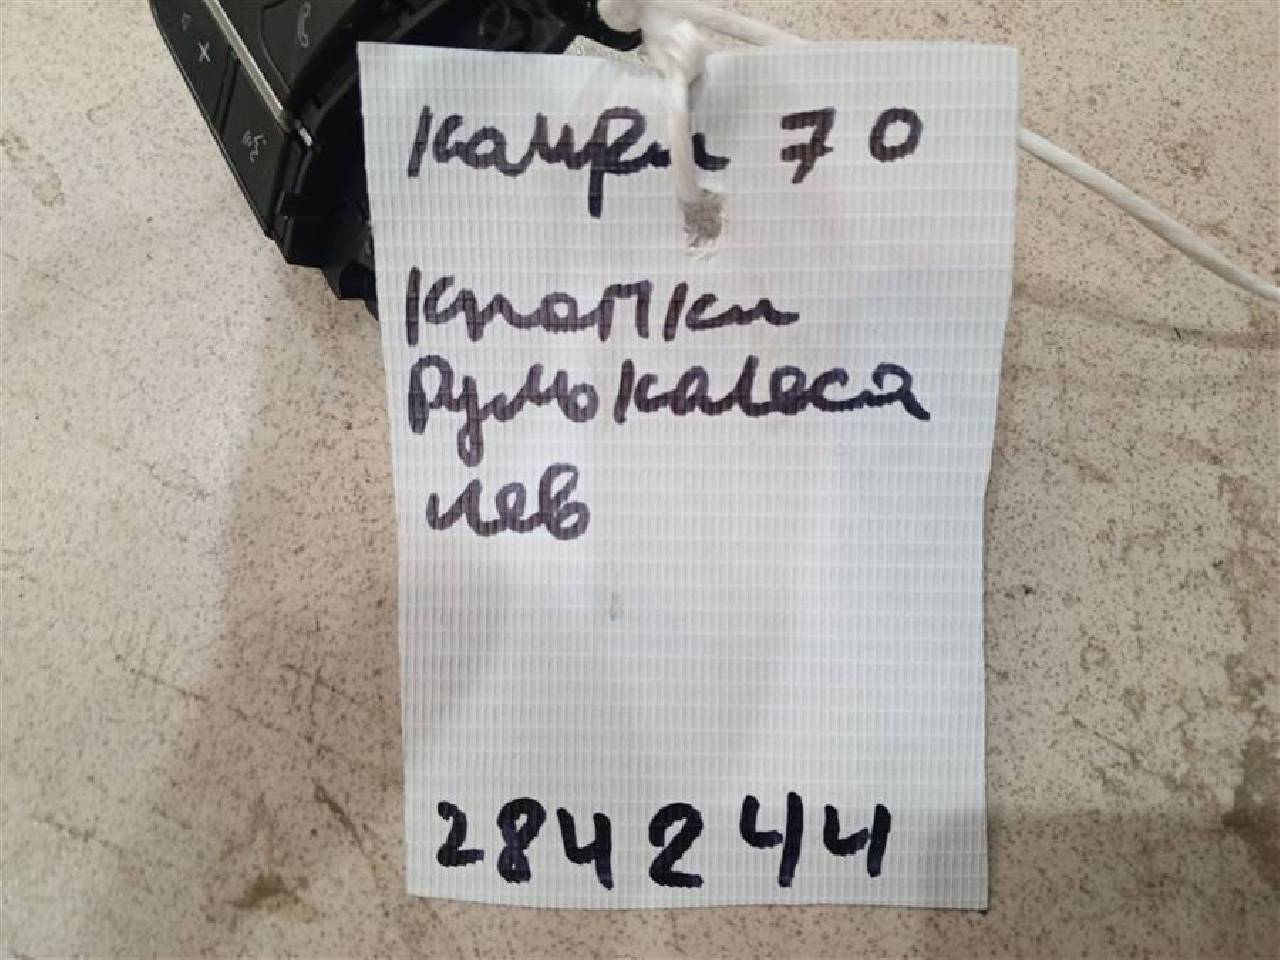 Камри 70
Кнопки
Руль колеса
лев
284244